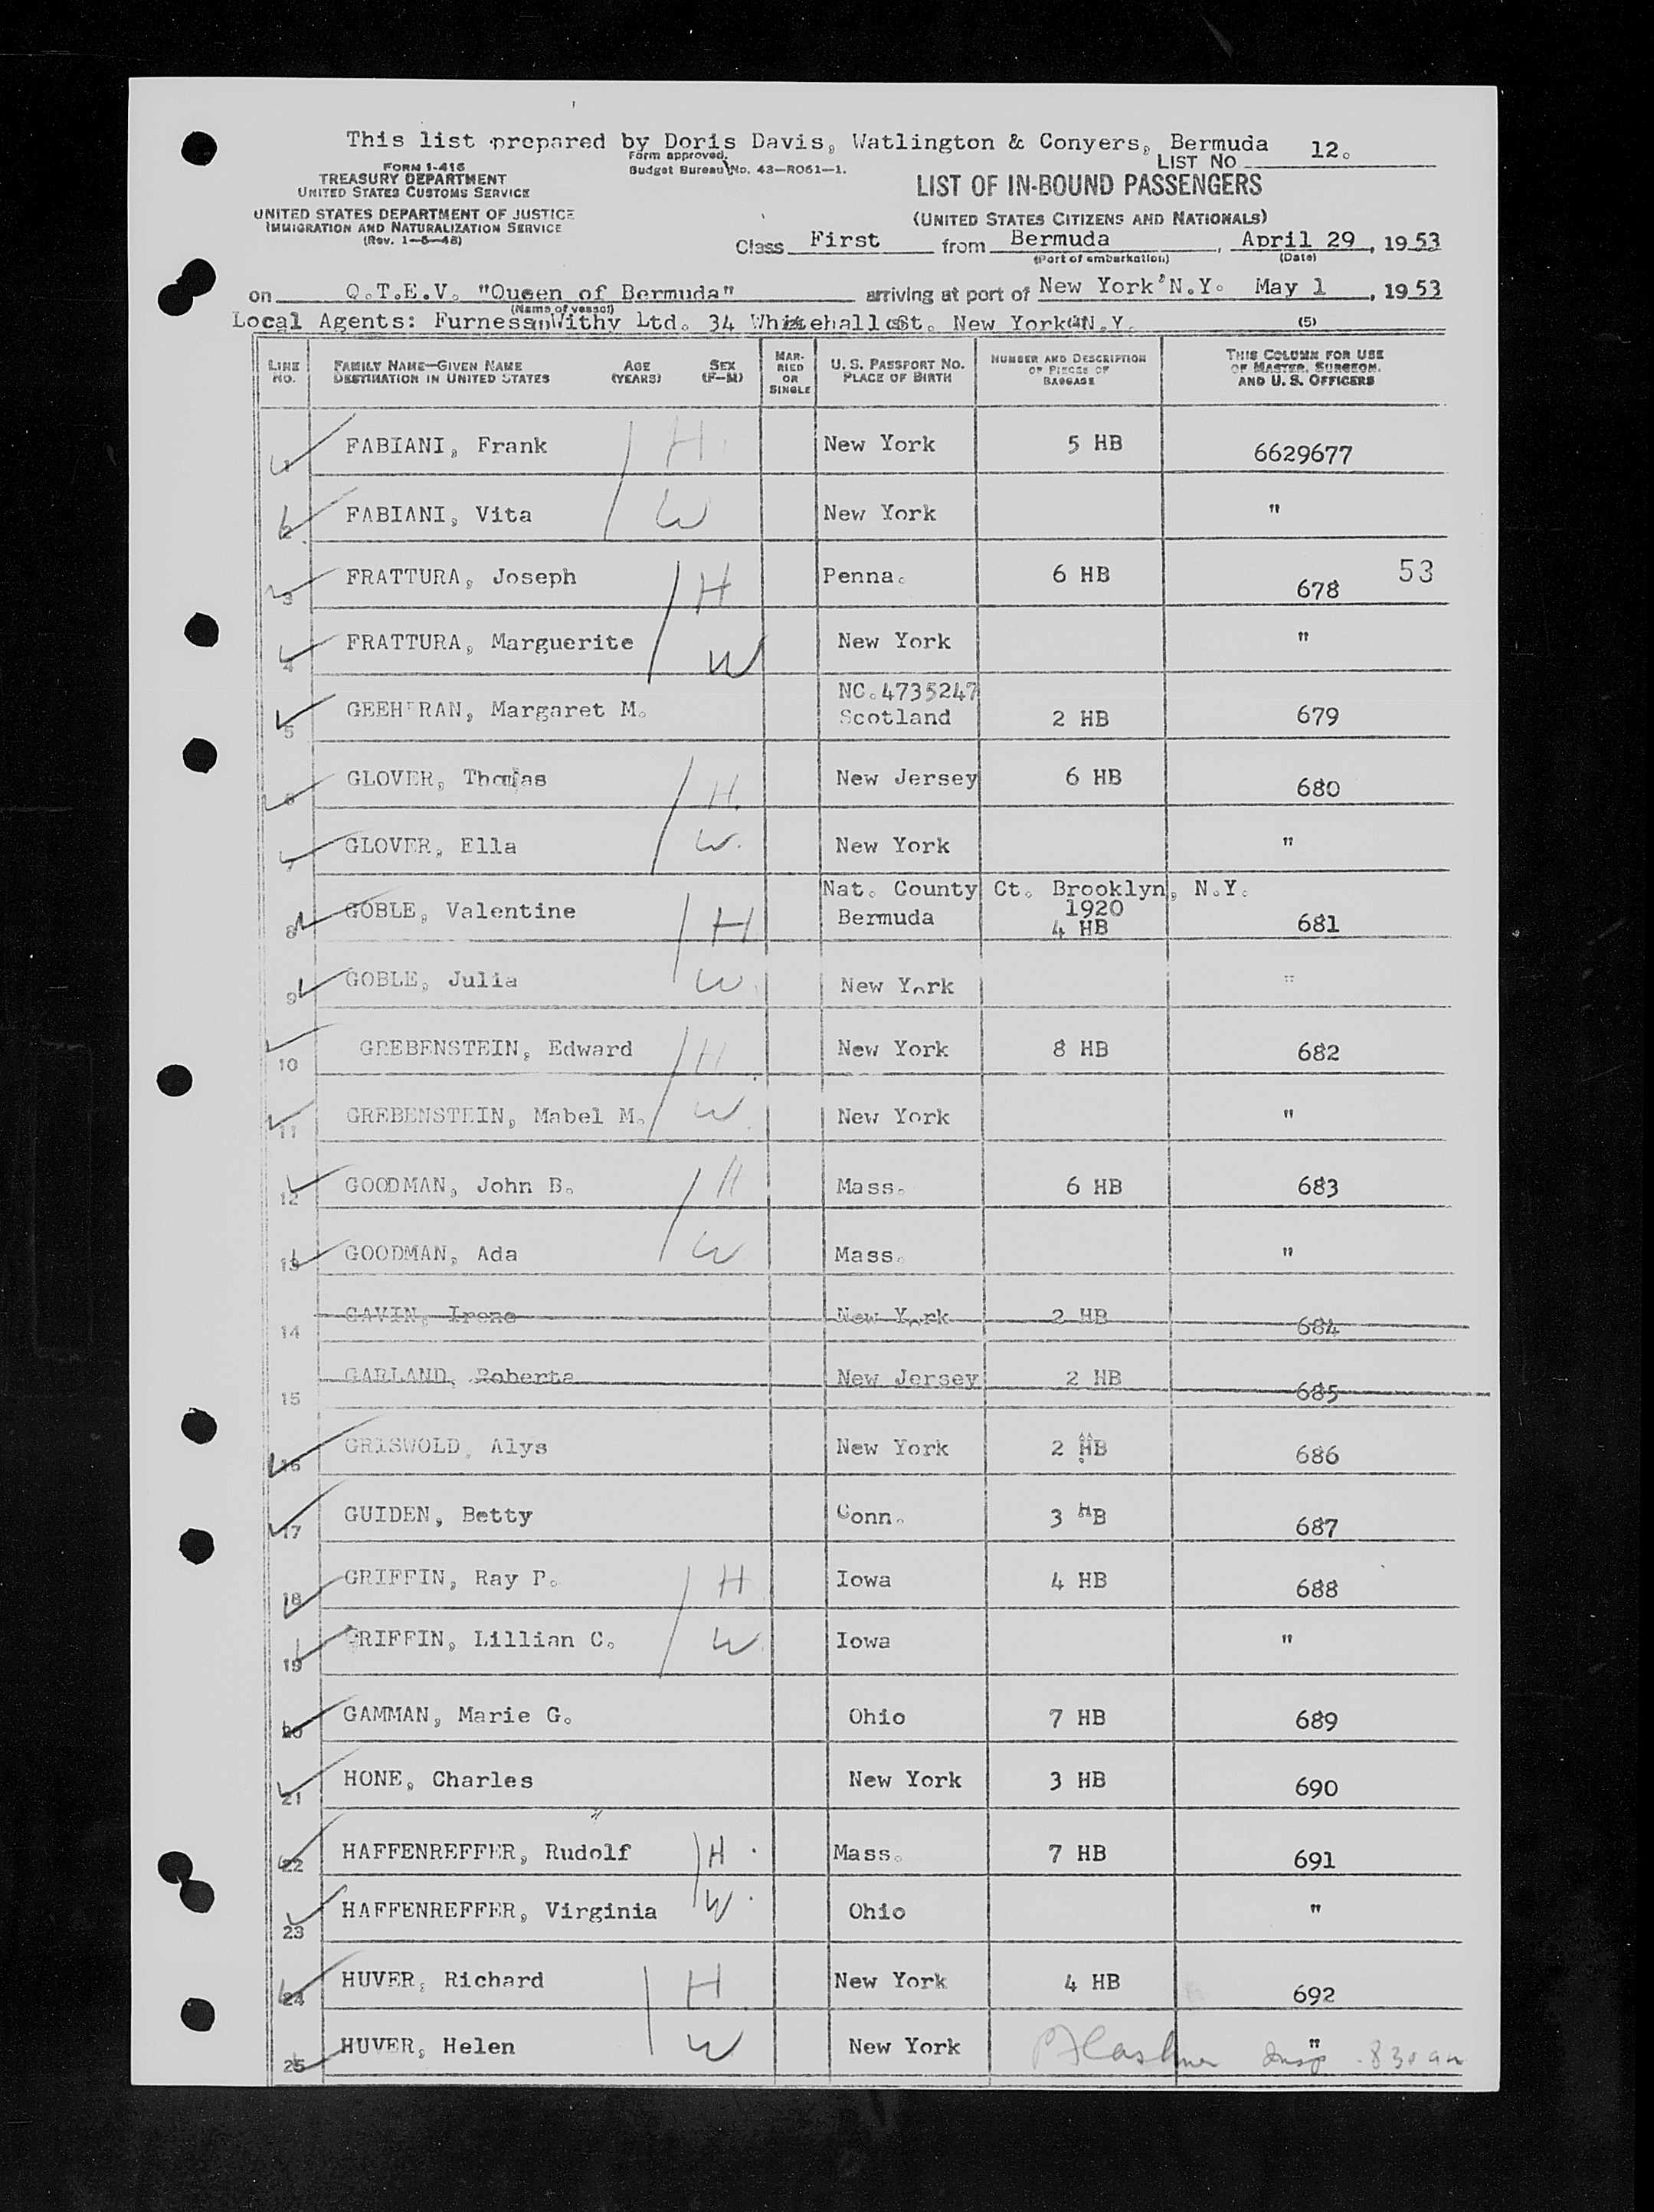 This list prepared by Doris Davis, Watlington & Conyers, Bermuda
LIST NO 12.
FORM I-416
TREASURY DEPARTMENT
UNITED STATES CUSTOMS SERVICE
UNITED STATES DEPARTMENT OF JUSTICE
IMMIGRATION AND NATURALIZATION SERVICE
(Rev. 1-5-48)
Form approved.
Budget Bureau No. 43-R061-1.
LIST OF IN-BOUND PASSENGERS
(UNITED STATES CITIZENS AND NATIONALS)
Class First from Bermuda, April 29, 1953
(Port of embarkation) (Date)
on Q.T.E.V. "Queen of Bermuda" arriving at port of New York, N.Y. May 1, 1953
(Name of vessel)
Local Agents: Furness Withy Ltd. 34 Whitehall St. New York N.Y.
(5)
LINE NO. FAMILY NAME—GIVEN NAME DESTINATION IN UNITED STATES AGE (YEARS) SEX (F—M) MARRIED OR SINGLE U. S. PASSPORT NO. PLACE OF BIRTH NUMBER AND DESCRIPTION OF PIECES OF BAGGAGE THIS COLUMN FOR USE OF MASTER, SURGEON, AND U. S. OFFICERS
1 FABIANI, Frank H New York 5 HB 6629677
2 FABIANI, Vita W New York "
53
3 FRATTURA, Joseph H Penna. 6 HB 678
4 FRATTURA, Marguerite W New York "
NC.4735247
5 GEEHERAN, Margaret M. Scotland 2 HB 679
6 GLOVER, Thomas H New Jersey 6 HB 680
7 GLOVER, Ella W. New York "
Nat. County Ct. Brooklyn, N.Y.
1920
8 GOBLE, Valentine H Bermuda 4 HB 681
9 GOBLE, Julia W New York "
10 GREBENSTEIN, Edward H New York 8 HB 682
11 GREBENSTEIN, Mabel M. W New York "
12 GOODMAN, John B. H Mass. 6 HB 683
13 GOODMAN, Ada W Mass. "
14 GAVIN, Irene New York 2 HB 684
15 GARLAND, Roberta New Jersey 2 HB 685
16 GRISWOLD, Alys New York 2 HB 686
17 GUIDEN, Betty Conn. 3 HB 687
18 GRIFFIN, Ray P. H Iowa 4 HB 688
19 GRIFFIN, Lillian C. W Iowa "
20 GAMMAN, Marie G. Ohio 7 HB 689
21 HONE, Charles New York 3 HB 690
22 HAFFENREFFER, Rudolf H Mass. 7 HB 691
23 HAFFENREFFER, Virginia W Ohio "
24 HUVER, Richard H New York 4 HB 692
25 HUVER, Helen W New York "
Insp 830 am